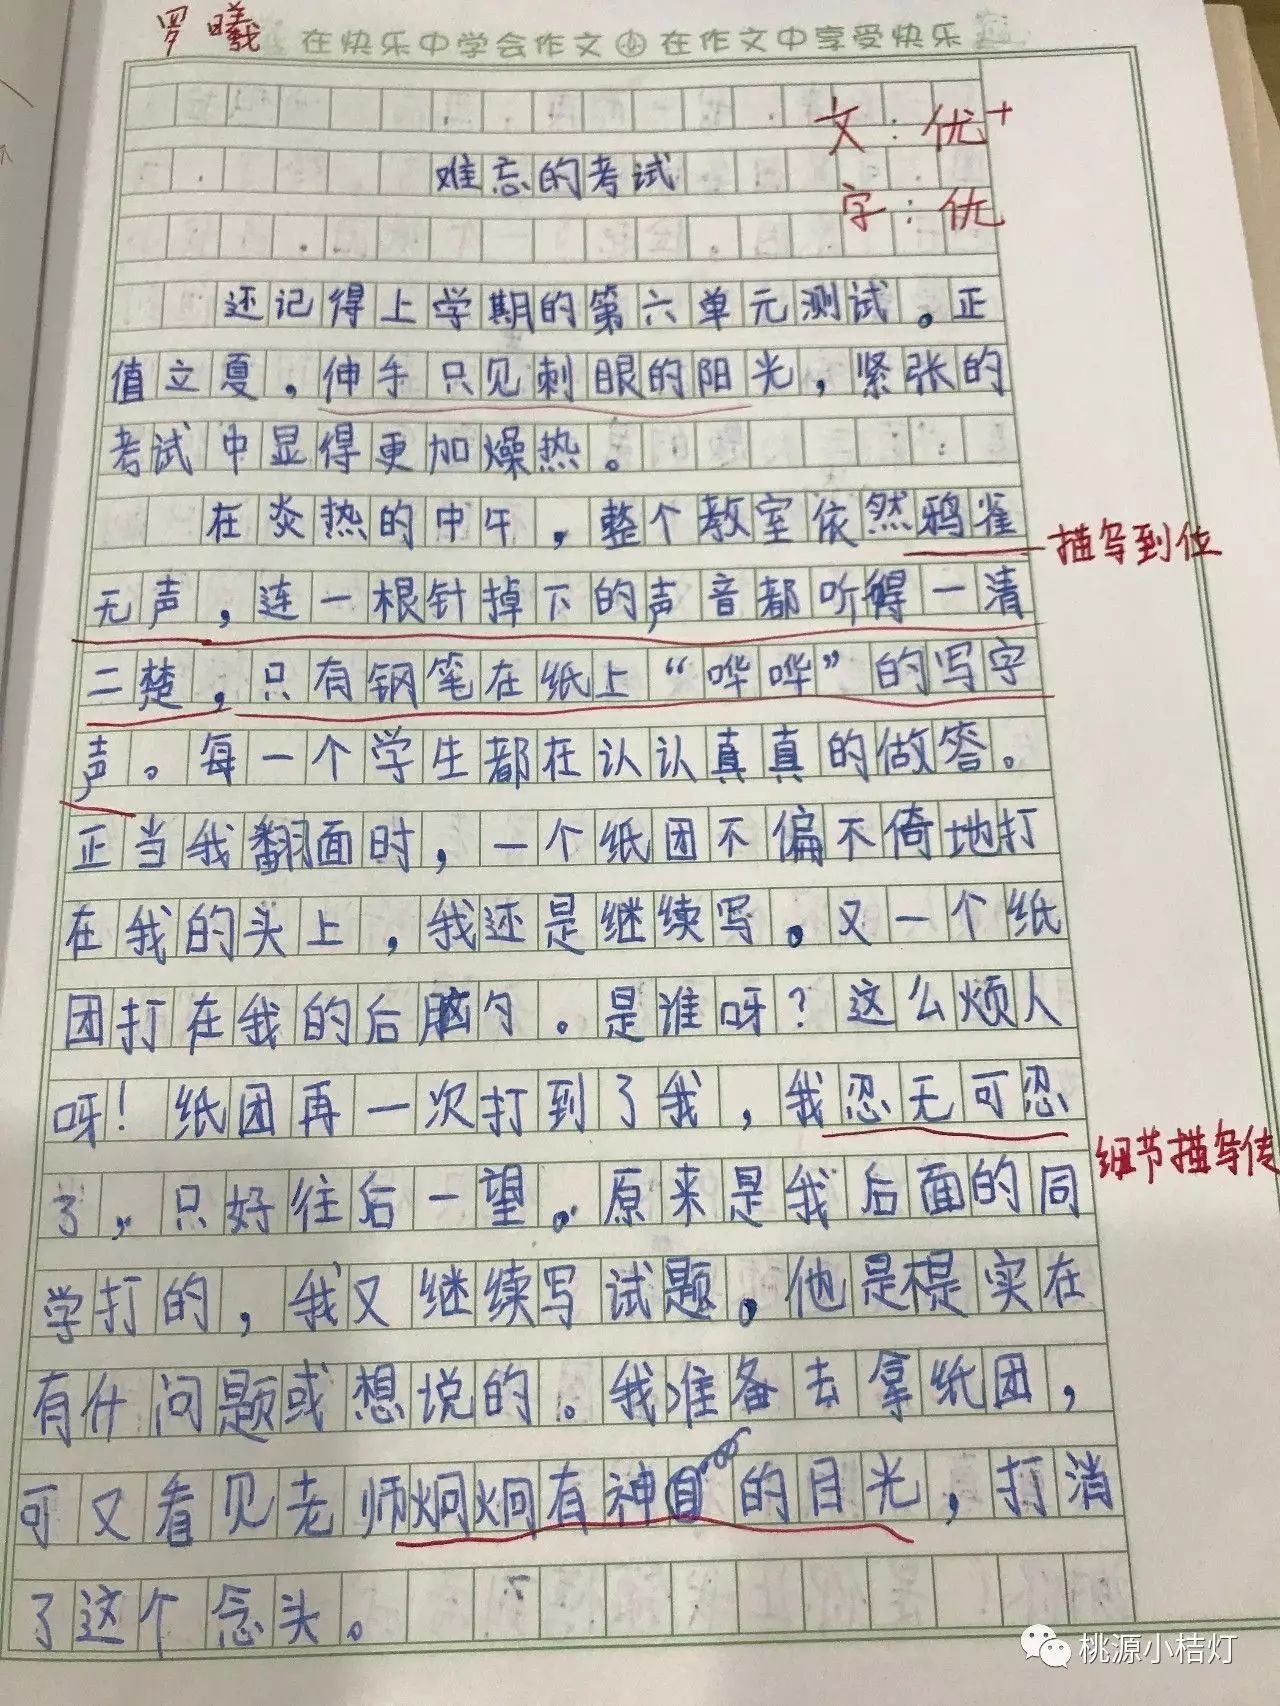 罗曦
在快乐中学会作文 在作文中享受快乐
文：优+
难忘的考试
字：优
还记得上学期的第六单元测试。正
值立夏，伸手只见刺眼的阳光，紧张的
考试中显得更加燥热。
在炎热的中午，整个教室依然鸦雀
描写到位
无声，连一根针掉下的声音都听得一清
二楚，只有钢笔在纸上“哗哗”的写字
声。每一个学生都在认认真真的做答。
正当我翻面时，一个纸团不偏不倚地打
在我的头上，我还是继续写。又一个纸
团打在我的后脑勺。是谁呀？这么烦人
呀！纸团再一次打到了我，我忍无可忍
细节描写传
了，只好往后一望。原来是我后面的同
学打的，我又继续写试题。他是是实在
有什问题或想说的。我准备去拿纸团，
可又看见老师炯炯有神的目光，打消
了这个念头。
桃源小桔灯